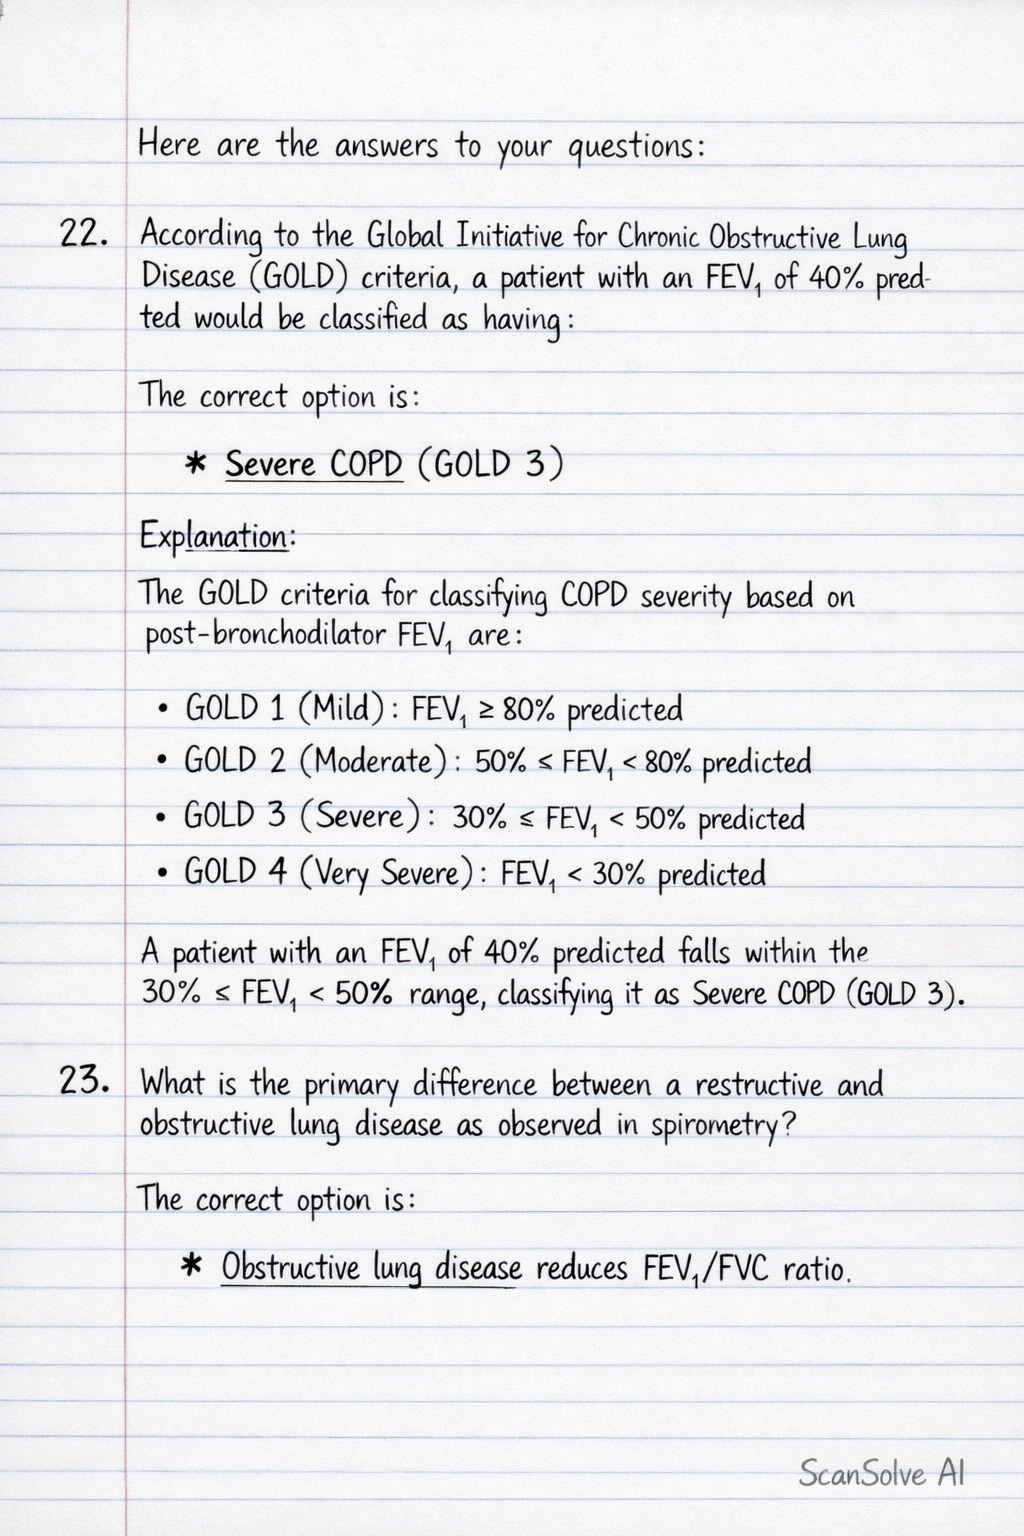 Here are the answers to your questions:
22. According to the Global Initiative for Chronic Obstructive Lung
Disease (GOLD) criteria, a patient with an FEV₁ of 40% pred-
ted would be classified as having:
The correct option is:
* Severe COPD (GOLD 3)
Explanation:
The GOLD criteria for classifying COPD severity based on
post-bronchodilator FEV₁ are:
• GOLD 1 (Mild): FEV₁ ≥ 80% predicted
• GOLD 2 (Moderate): 50% ≤ FEV₁ < 80% predicted
• GOLD 3 (Severe): 30% ≤ FEV₁ < 50% predicted
• GOLD 4 (Very Severe): FEV₁ < 30% predicted
A patient with an FEV₁ of 40% predicted falls within the
30% ≤ FEV₁ < 50% range, classifying it as Severe COPD (GOLD 3).
23. What is the primary difference between a restructive and
obstructive lung disease as observed in spirometry?
The correct option is:
* Obstructive lung disease reduces FEV₁/FVC ratio.
ScanSolve AI